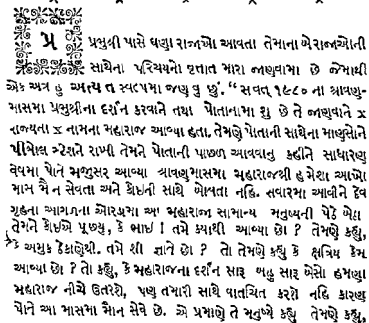 પ્ર
પ્રમુશ્રી પાસે ઘણા રાજાઓ આવતા તેમાના બે રાજાઓની
સાથેના પરિચયનો વૃત્તાત મારા જાણવામા છે જેમાથી
એક અત્ર હુ અત્ય ત સ્વલ્પમા જણાવુ છું. “ સવત્ ૧૯૮૦ ના શ્રાવણ-
માસમા પ્રભુશ્રીના દર્શન કરવાને તથા પોતાનામા શુ છે તે જાણવાને x
રાજ્યના x નામના મહારાજ આવ્યા હતા, તેમણે પોતાની સાથેના માણસોને
પીમેલ સ્ટેશને રાખી તેમને પોતાની પાછળ આવવાનુ કહીને સાધારણ
વેષમા પોતે મજુસર આવ્યા શ્રાવણમાસમા મહારાજશ્રી હ મેશા આખો
માસ મૈાન સેવતા અને કોઇની સાથે બોલતા નહિ. સવારમા આવીને દેવ
ગૃહના આગળના ઓરડામા આ મહારાજા સામાન્ય મનુષ્યની પેઠે બેઠા
તેમને કોઇએ પૂછ્યુ, કે ભાઇ ! તમે ક્યાથી આવ્યા છો ? તેમણે કહ્યુ,
કે અમુક ઠેકાણેથી. તમે શી જ્ઞાતે છો ? તો તેમણે કહ્યુ કે ક્ષત્રિય કેમ
આવ્યા છો ? તો કહ્યુ, કે મહારાજના દર્શન સારૂ બહુ સારૂ બેસો હમણા
મહારાજ નીચે ઉતરશે, પણ તમારી સાથે વાતચિત કરશે નહિ કારણ
પોતે આ માસમા મૈાન સેવે છે. એ પ્રમાણે તે મનુષ્યે કહ્યુ તેમણે કહ્યુ,